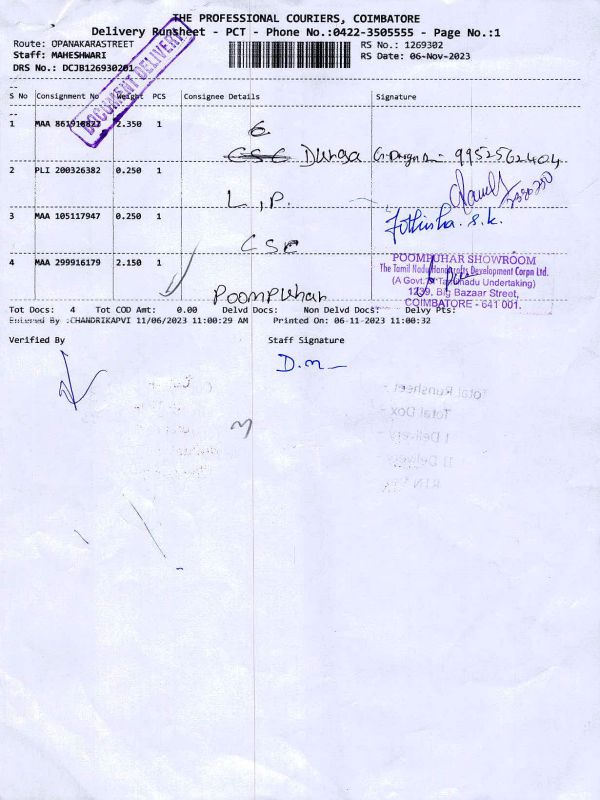 THE PROFESSIONAL COURIERS, COIMBATORE
Delivery Runsheet - PCT - Phone No.:0422-3505555 - Page No.:1
Route: OPANAKARASTREET
RS No.: 1269302
Staff: MAHESHWARI
RS Date: 06-Nov-2023
DRS No.: DCJB126930201
DOCUMENT DELIVERY
S No Consignment No Weight PCS Consignee Details Signature
1 MAA 2.350 1
G
CSC Durga 9952562404
2 PLI 200326382 0.250 1
L.P.
3 MAA 105117947 0.250 1
Jothisha. s.k.
CSC
4 MAA 299916179 2.150 1
Poompuhar
POOMPUHAR SHOWROOM
The Tamil Nadu Handicrafts Development Corpn Ltd.
(A Govt. of Tamilnadu Undertaking)
1239, Big Bazaar Street,
COIMBATORE - 641 001.
Tot Docs: 4 Tot COD Amt: 0.00 Delvd Docs: Non Delvd Docs: Delvy Pts:
Entered By :CHANDRIKAPVI 11/06/2023 11:00:29 AM Printed On: 06-11-2023 11:00:32
Verified By Staff Signature
D.m
Total Runsheet -
Total Dox -
I Delivery -
II Delivery
RTN